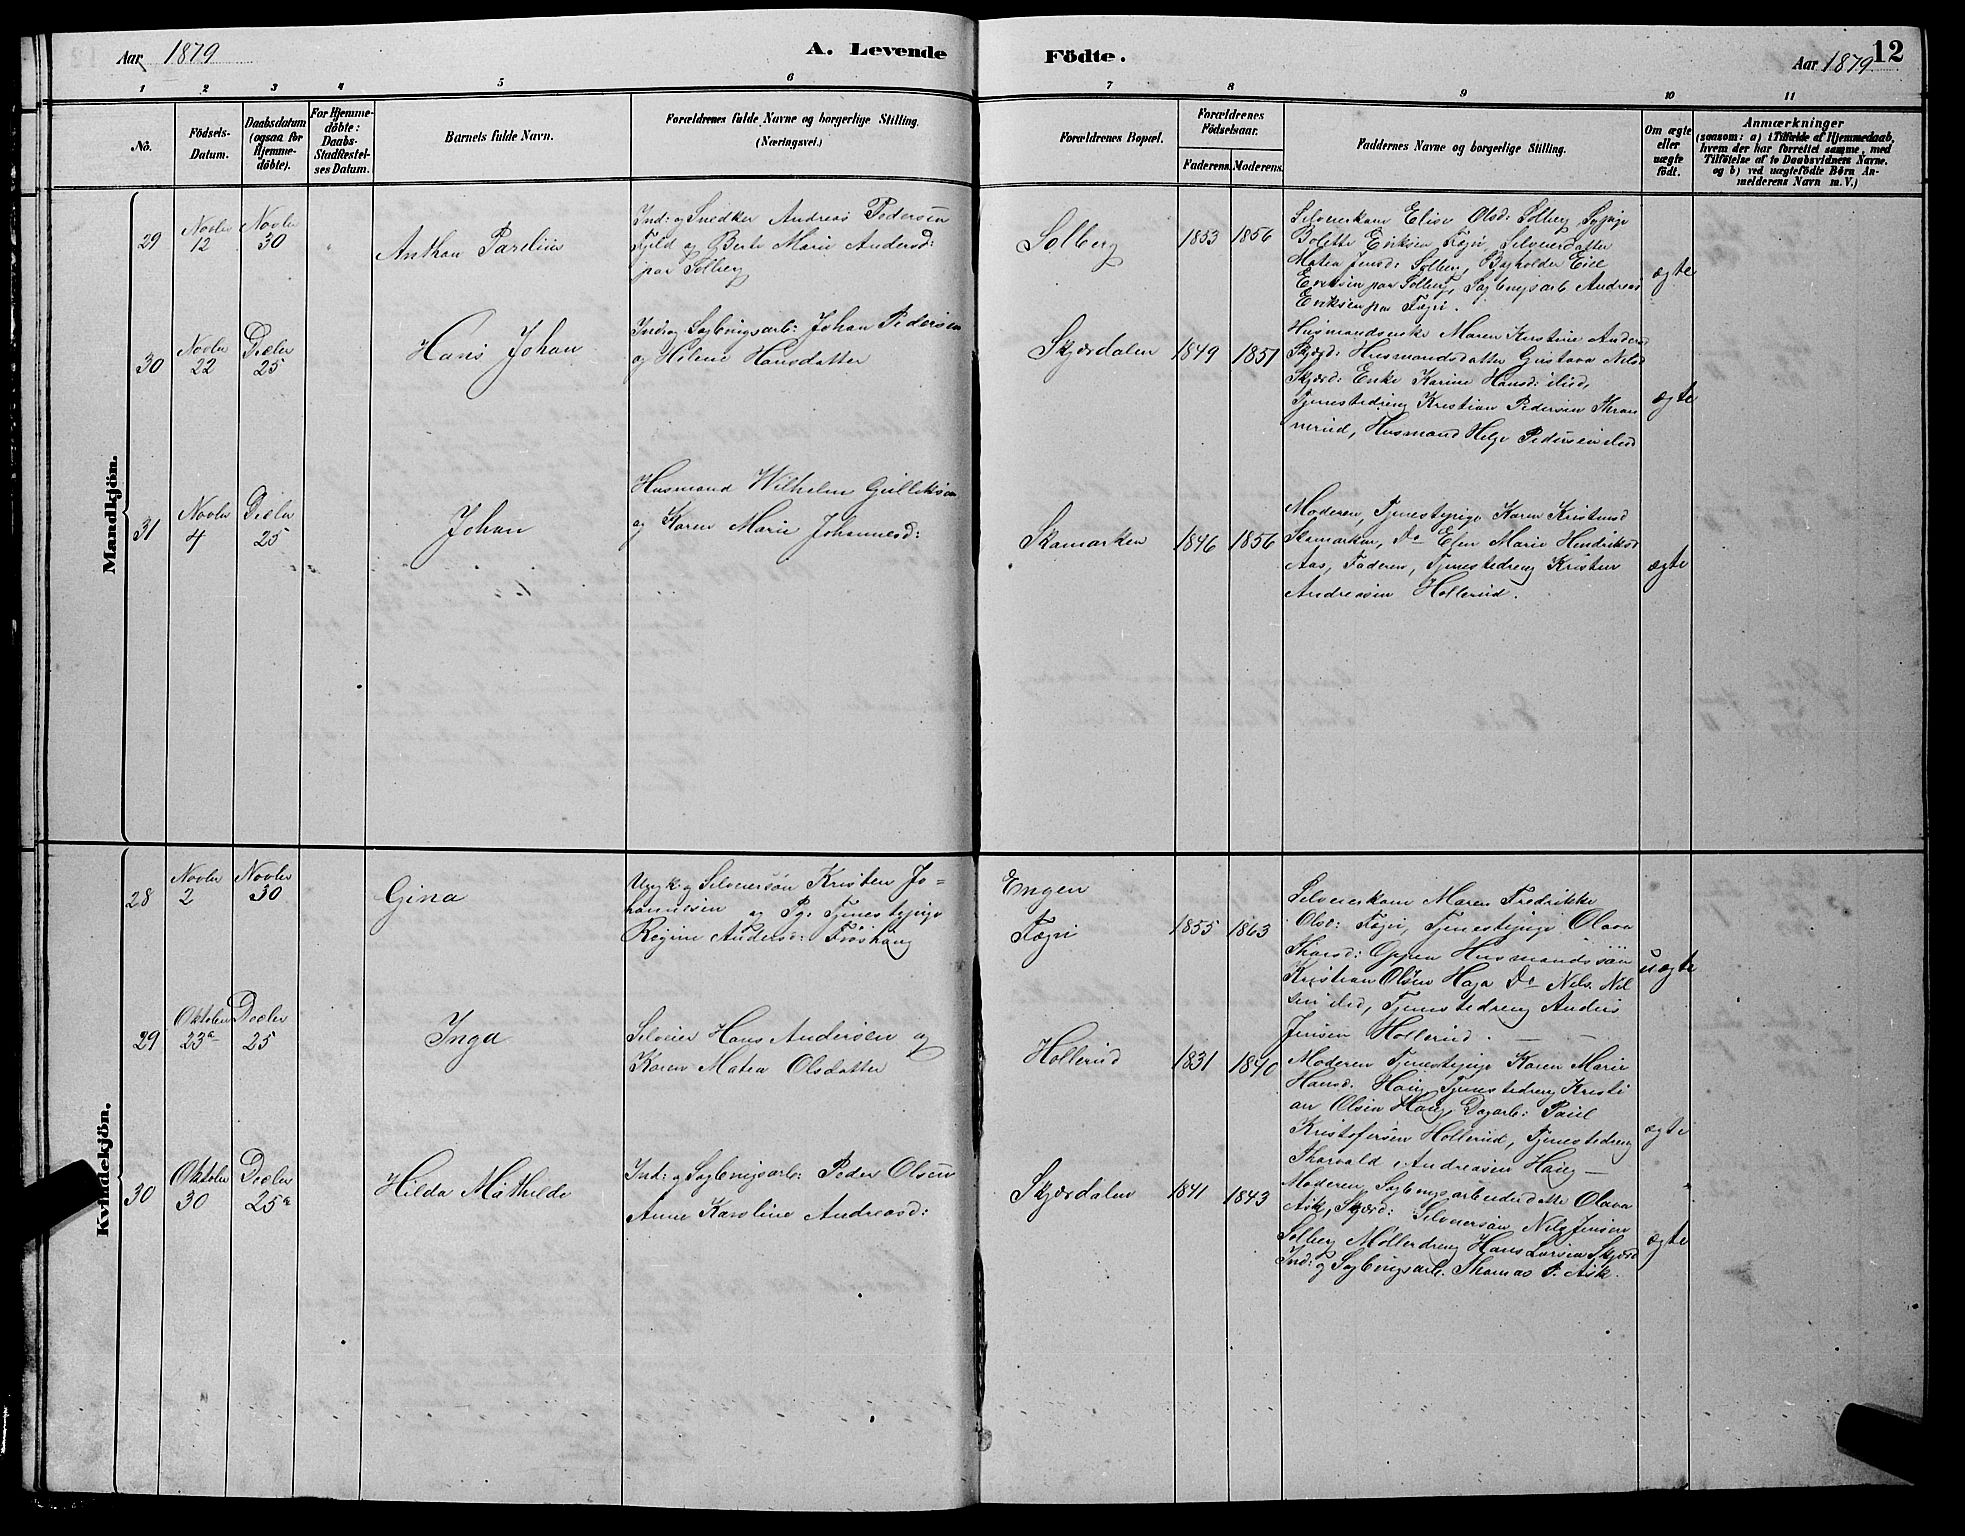 Aar 1879
A. Levende
Födte.
Aar 1879
12
1 2 3 4 5 6 7 8 9 10 11
No.
Födsels-
Datum.
Daabsdatum
(ogsaa for
Hjemme-
döbte).
For Hjemme-
döbte:
Daabs-
Stadfestel-
ses Datum.
Barnets fulde Navn.
Forældrenes fulde Navne og borgerlige Stilling.
(Næringsvei.)
Forældrenes Bopæl.
Forældrenes
Födselsaar.
Faderens. Moderens.
Faddernes Navne og borgerlige Stilling.
Om ægte
eller
uægte
födt.
Anmærkninger
(saasom: a) i Tilfælde af Hjemmedaab,
hvem der har forrettet samme, med
Tilföielse af to Daabsvidners Navne.
og b) ved uægtefödte Börn An-
melderens Navn m.V.)
Mandkjön.
29
Novbr
12
Novbr
30
Anthon Parelius
Ind: og Snedker Andreas Pedersen
Fjeld og Berte Marie Andersd:
paa Solberg
Solberg
1853
1856
Selveierkone Elise Olsd: Solberg,
Bolette Eriksen Fægri, Selveierdatter
Matea Jensd: Solberg,
Eriksen paa Solberg, Sagbrugsarb Andreas
Eriksen paa Fægri.
ægte
30
Novbr
22
Decbr
25
Hans Johan
Ind: og Sagbrugsarb: Johan Pedersen
og Helene Hansdatter
Skjærdalen
1849
1851
Husmandsenke Maren Kristine Anders
Skjærd: Husmandsdatter Gustava Nilsd
Skjærd: Enke Karine Hansd: ibid,
Tjenestedreng Kristian Pedersen
Husmand Helge Pedersen ibid
ægte
31
Novbr
4
Decbr
25
Johan
Husmand Wilhelm Gulliksen
og Karen Marie Johannesd:
Skamarken
1846
1856
Moderen, Tjenestepige Karen Kristensd
Skamarken, Do Elen Marie Hendriksd
Aas, Faderen, Tjenestedreng Kristen
Andreasen Hollerud.
ægte
Kvindekjön.
28
Novbr
2
Novbr
30
Gina
Ungk: og Selveiersön Kristen Jo=
hannesen og Pg. Tjenestepige
Regine Andersd: Fröshaug
Engen
Fægri
1855
1863
Selveierkone Maren Fredrikke
Olsd: Fægri, Tjenestepige Olava
Thorsd: Oppen Husmandssön
Kristian Olsen Haga Do Nils Nil
sen ibid, Tjenestedreng Anders
Jensen Hollerud.
uægte
29
Oktober
23de
Decbr
25
Inga
Selveier Hans Andersen og
Karen Matea Olsdatter
Hollerud
1831
1840
Moderen Tjenestepige Karen Marie
Hansd. Haug, Tjenestedreng Kristi
an Olsen Haug, Dagarb: Paul
Kristofersen Hollerud, Tjenestedreng
Thorvald Andreasen Haug
ægte
30
Oktober
30
Decbr
25
Hilda Mathilde
Ind: og Sagbrugsarb: Peder Olsen
Anne Karoline Andreasd:
Skjærdalen
1841
1843
Moderen, Sagbrugsarbeiderdatter Olava
Ask, Skjærd: Selveiersön Nils Jensen
Solberg Möllerdreng Hans Larsen Skjærd
Ind: og Sagbrugsarb. Thomas P. Ask.
ægte